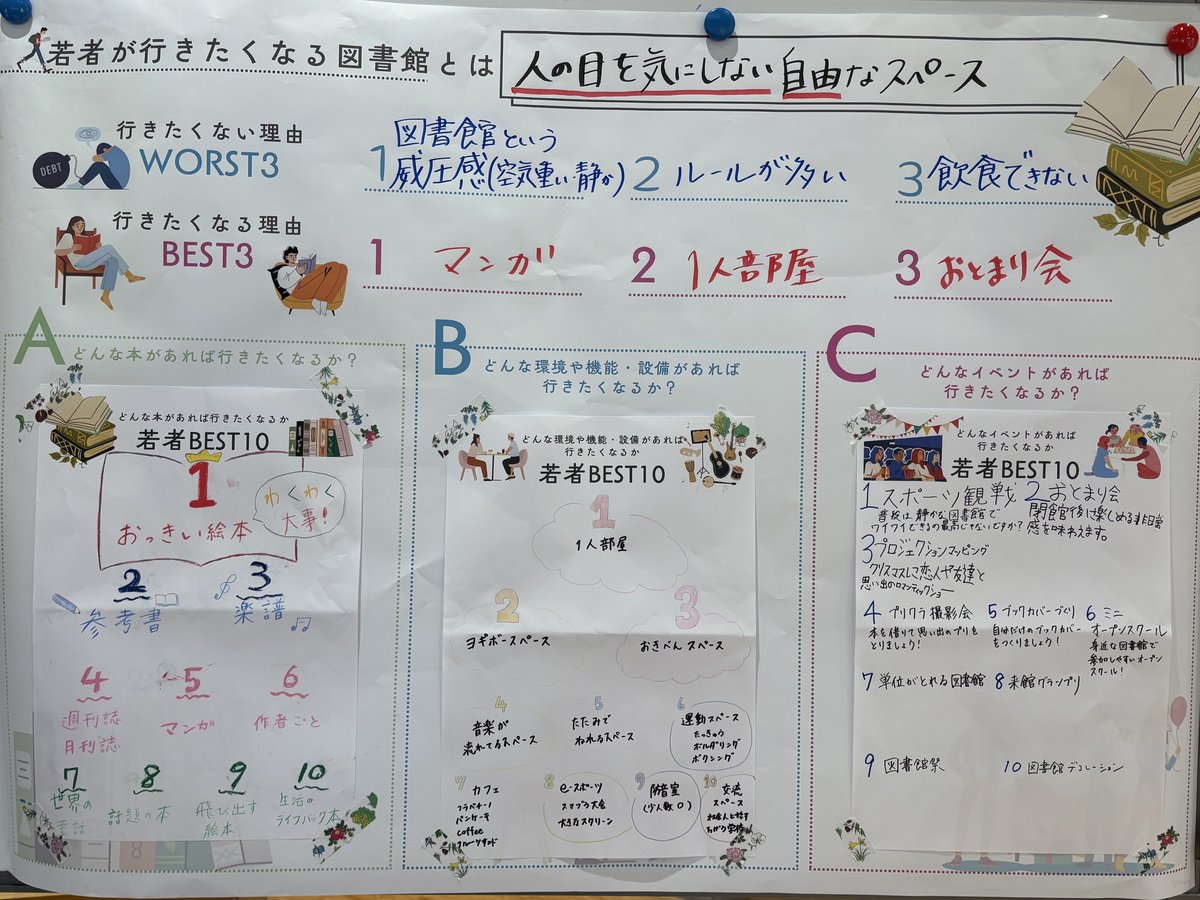 若者が行きたくなる図書館とは
人の目を気にしない自由なスペース
行きたくない理由
WORST3
DEBT
1 図書館という
威圧感(空気重い・静か)
2 ルールが多い
3 飲食できない
行きたくなる理由
BEST3
1 マンガ
2 1人部屋
3 おとまり会
A どんな本があれば行きたくなるか?
どんな本があれば行きたくなるか
若者BEST10
1
おっきい絵本
わくわく
大事!
2
参考書
3
楽譜
4
週刊誌
月刊誌
5
マンガ
6
作者ごと
7
世界の
童話
8
話題の本
9
飛び出す
絵本
10
生活の
ライフハック本
B どんな環境や機能・設備があれば
行きたくなるか?
どんな環境や機能・設備があれば
行きたくなるか
若者BEST10
1
1人部屋
2
ヨギボースペース
3
おきべんスペース
4
音楽が
流れてるスペース
5
たたみで
ねれるスペース
6
運動スペース
たっきゅう
ボルダリング
ボクシング
7
カフェ
フラペチーノ
パンケーキ
coffee
フルーツサンド
8
e-スポーツ
スマブラ大会
大きなスクリーン
9
防音室
(少人数〇)
10
交流
スペース
ちがう学校
C どんなイベントがあれば
行きたくなるか?
どんなイベントがあれば
行きたくなるか
若者BEST10
1 スポーツ観戦
普段は静かな図書館で
ワイワイできるの最高じゃないですか?
2 おとまり会
閉館後に楽しめる非日常
感を味わえます。
3 プロジェクションマッピング
クリスマスに恋人や友達と
思い出のロマンティックショー
4 プリクラ撮影会
本を借りて思い出のプリを
とりましょう!
5 ブックカバーづくり
自分だけのブックカバー
をつくりましょう!
6 ミニ
オープンスクール
身近な図書館で
参加しやすいオープン
スクール!
7 単位がとれる図書館
8 来館グランプリ
9 図書館祭
10 図書館デコレーション